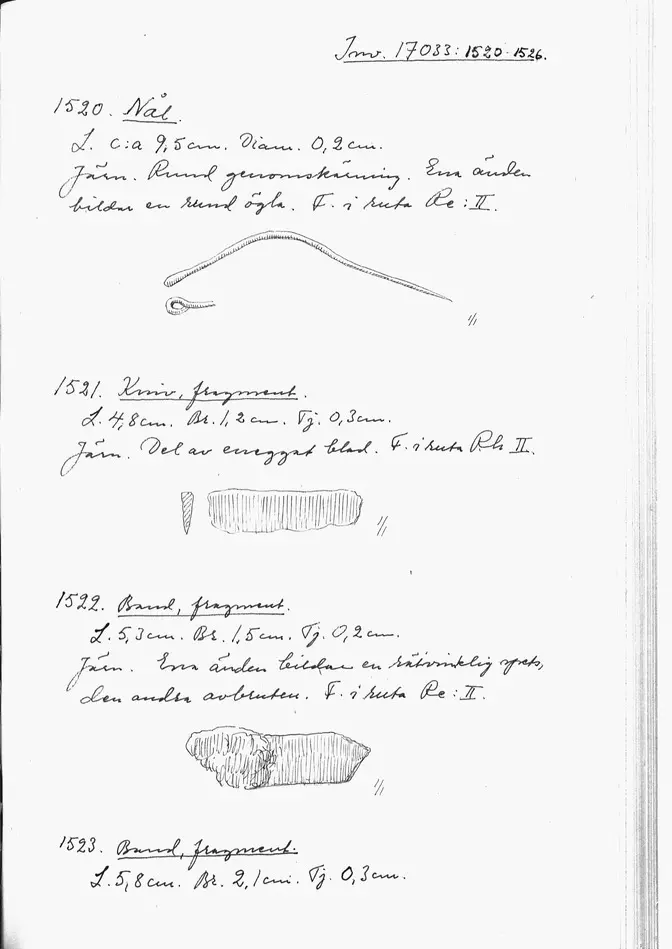 Inv. 17033:1520-1526.
1520. Nål.
L. c:a 9,5 cm. Diam. 0,2 cm.
Järn. Rund genomskärning. Ena änden
bildar en rund ögla. F. i ruta Re:II.
1/1
1521. Kniv, fragment.
L. 4,8 cm. Br. 1,2 cm. Tj. 0,3 cm.
Järn. Del av eneggat blad. F. i ruta Rh II.
1/1
1522. Band, fragment.
L. 5,3 cm. Br. 1,5 cm. Tj. 0,2 cm.
Järn. Ena änden bildar en rätvinklig spets,
den andra avbruten. F. i ruta Re:II.
1/1
1523. Band, fragment.
L. 5,8 cm. Br. 2,1 cm. Tj. 0,3 cm.